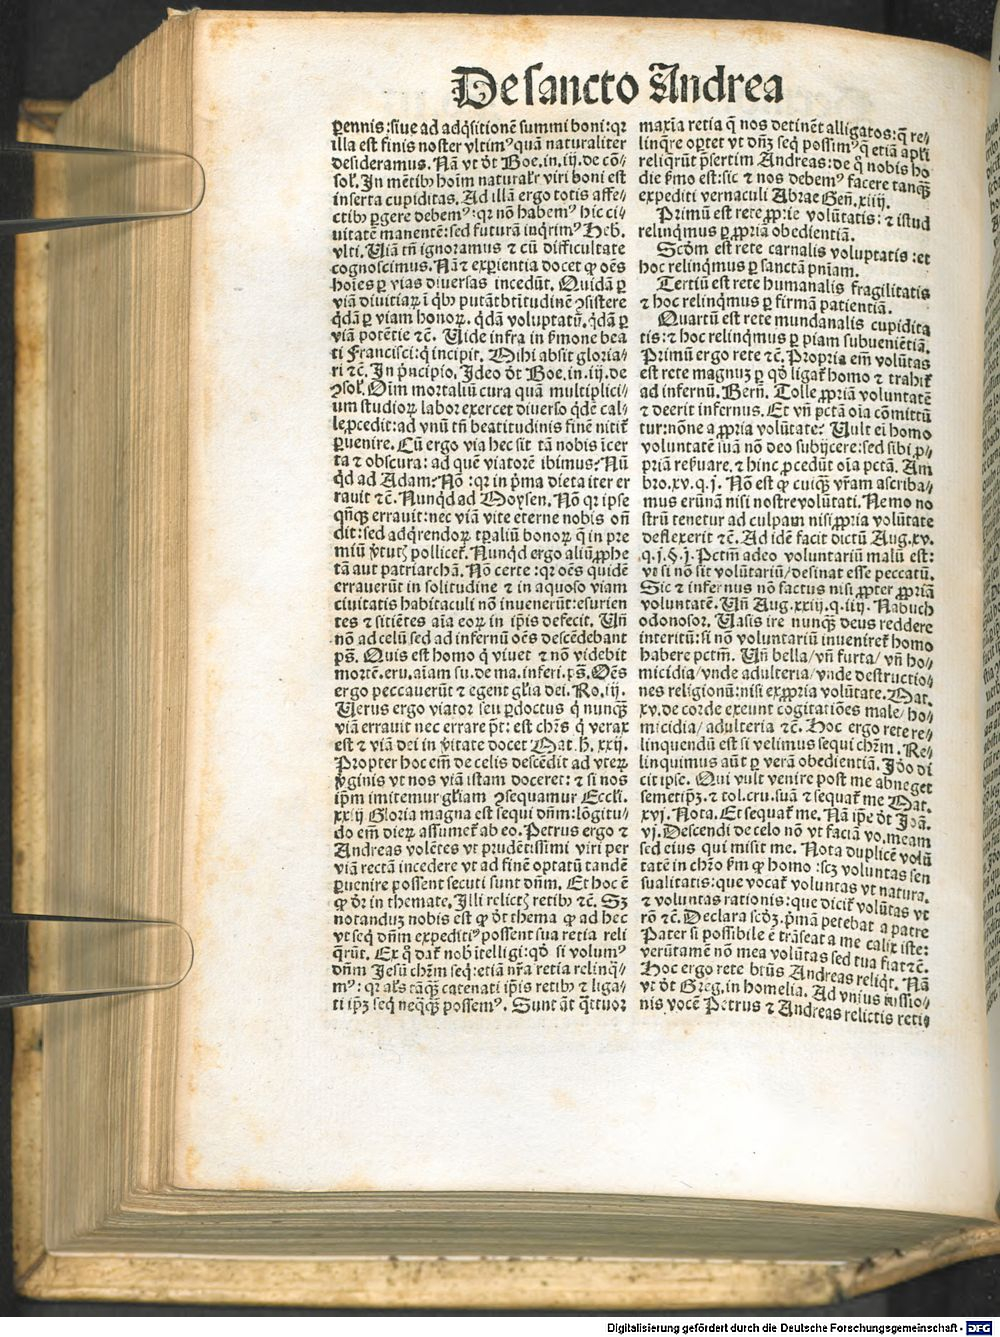 De sancto Andrea
ꝑennis: siue ad adq̇sitionē summi boni: qꝛ
illa est finis noster vltimꝰ quā naturaliter
desideramus. Nā vt dt̄ Boe. in. iij. de cō⸗
sol̄. In mētibꝫ hoīm natural̄r viri boni est
inserta cupiditas. Ad illā ergo totis affe⸗
ctibꝫ ꝑgere debemꝰ: qꝛ nō habemꝰ hic ci⸗
uitatē manentē: sed futurā inq̇rimꝰ Heb.
vlti. Uiā tn̄ ignoramus ⁊ cū difficultate
cognoscimus. Nā ⁊ experientia docet ꝙ oēs
hoīes ꝑ vias diuersas incedūt. Quidā ꝑ
viā diuitiaꝝ ī q̇bꝫ putāt btītudinē ꝯsistere
q̇dā ꝑ viam honoꝝ. q̇dā voluptatū. q̇dā ꝑ
viā potētie ⁊c̄. Uide infra in ẜmone bea
ti Francisci: q̇ incipit. Mihi absit gloria⸗
ri ⁊c̄. In pͥncipio. Ideo dt̄ Boe. in. iij. de
ꝯsol̄. Oīm mortaliū cura quā multiplici⸗
um studioꝝ labor exercet diuerso q̇de cal⸗
le ꝓcedit: ad vnū tn̄ beatitudinis finē nitit̄
ꝑuenire. Cū ergo via hec sit tā nobis īcer
ta ⁊ obscura: ad quē viatorē ibimus? Nū
q̇d ad Adam? Nō: qꝛ in pͥma dieta iter er
rauit ⁊c̄. Nunq̇d ad Moysen. Nō qꝛ ipse
qn̄qꝫ errauit: nec viā vite eterne nobis on̄
dit: sed adq̇rendoꝝ tp̄aliū bonoꝝ q̄ in pre
miū v̓tutꝫ pollicet̄. Nunq̇d ergo aliū ꝓphe
tā aut patriarchā. Nō certe: qꝛ oēs quidē
errauerūt in solitudine ⁊ in aquoso viam
ciuitatis habitaculi nō inuenerūt: esurien
tes ⁊ sitiētes aīa eoꝝ in ip̄is defecit. Un̄
nō ad celū sed ad infernū oēs descēdebant
ps̄. Quis est homo q̇ viuet ⁊ nō videbit
mortē. eru. aīam su. de ma. inferi. ps̄. Oēs
ergo peccauerūt ⁊ egent gl̄ia dei. Ro. iij.
Uerus ergo viator seu ꝑdoctus q̇ nunqꝫ̄
viā errauit nec errare pt̄: est chr̄s q̇ verax
est ⁊ viā dei in v̓itate docet Mat. h̄. xxij.
Propter hoc em̄ de celis descēdit ad vterū
v̓ginis vt nos viā istam doceret: ⁊ si nos
ip̄m imitemur gl̄iam ꝯsequamur Eccl̄i.
xxiij Gloria magna est sequi dn̄m: lōgitu⸗
do em̄ dieꝝ assumet̄ ab eo. Petrus ergo ⁊
Andreas volētes vt prudētissimi viri per
viā rectā incedere vt ad finē optatū tandē
ꝑuenire possent secuti sunt dn̄m. Et hoc ē
ꝙ dr̄ in themate. Illi relictꝭ retibꝫ ⁊c̄. Sꝫ
notanduꝫ nobis est ꝙ dt̄ thema ꝙ ad hec
vt seq̇ dn̄m expeditiꝰ possent sua retia reli
q̇rūt. Ex q̊ dat̄ nob̓ ītelligi: qd̓ si volumꝰ
dn̄m Jesū chr̄m seq̇: etiā nr̄a retia relinq̇⸗
mꝰ: qꝛ al̓s tāqꝫ̄ catenati ip̄is retibꝫ ⁊ liga⸗
ti ip̄ꝫ seq̇ neq̄qꝫ̄ possemꝰ. Sunt āt q̄ttuor
maxīa retia q̄ nos detinēt alligatos: q̄ re⸗
linq̄re oꝑtet vt dn̄ꝫ seq̇ possimꝰ q̄ etiā apl̄i
reliq̇rūt p̄sertim Andreas: de q̊ nobis ho
die ẜmo est: sic ⁊ nos debemꝰ facere tanqꝫ̄
expediti vernaculi Abrae Gen̄. xiiij.
Primū est rete ꝓprie volūtatis: ⁊ istud
relinq̇mus ꝑ ꝓpriā obedientiā.
Scd̓m est rete carnalis voluptatis: et
hoc relinq̇mus ꝑ sanctā pn̄iam.
Tertiū est rete humanalis fragilitatis
⁊ hoc relinq̇mus ꝑ firmā patientiā.
Quartū est rete mundanalis cupidita
tis: ⁊ hoc relinq̇mus ꝑ piam subuenientiā.
Primū ergo rete ⁊c̄. Propria em̄ volūtas
est rete magnuꝫ ꝑ qd̓ ligat̄ homo ⁊ trahit̄
ad infernū. Bern̄. Tolle ꝓpriā voluntatē
⁊ deerit infernus. Et vn̄ pctā oīa cōmittū
tur: nōne a ꝓpria volūtate? Uult em̄ homo
voluntatē suā nō deo subijcere: sed sibi ꝓ⸗
priā reẜuare. ⁊ hinc ꝓcedūt oīa pctā. Am
bro. xv. q. j. Nō est ꝙ cuiqꝫ vr̄am ascriba⸗
mus erūnā nisi nostre volūtati. Nemo no
strū tenetur ad culpam nisi ꝓpria volūtate
deflexerit ⁊c̄. Ad idē facit dictū Aug. xv.
q. j. §. j. Pctm̄ adeo voluntariū malū est:
vt si nō sit volūtariū/ desinat esse peccatū.
Sic ⁊ infernus nō factus nisi ꝓpter ꝓpriā
voluntatē. Un̄ Aug. xxiij. q. iiij. Nabuch
odonosor. Uasis ire nunqꝫ̄ deus reddere
interitū: si nō voluntariū inueniret̄ homo
habere pctm̄. Un̄ bella/ vn̄ furta/ vn̄ ho⸗
micidia/ vnde adulteria/ vnde destructio⸗
nes religionū: nisi ex ꝓpria volūtate. Mat.
xv. de corde exeunt cogitatiōes male/ ho⸗
micidia/ adulteria ⁊c̄. Hoc ergo rete re⸗
linquendū est si velimus sequi chr̄m. Re⸗
linquimus aūt ꝑ verā obedientiā. Jd̓o di
cit ipse. Qui vult venire post me abneget
semetip̄ꝫ. ⁊ tol. cru. suā ⁊ sequat̄ me Mat.
xvj. Nota. Et sequat̄ me. Nā ip̄e dt̄ Joā.
vj. Descendi de celo nō vt faciā vo. meam
sed eius qui misit me. Nota duplicē volū
tatē in chr̄o ẜm ꝙ homo: scꝫ voluntas sen
sualitatis: que vocat̄ voluntas vt natura.
⁊ voluntas rationis: que dicit̄ volūtas vt
rō ⁊c̄. Declara scd̓ꝫ. pͥmā petebat a patre
Pater si possibile ē trāseat a me calix iste:
verūtamē nō mea volūtas sed tua fiat ⁊c̄.
Hoc ergo rete bt̄us Andreas reliq̇t. Nā
vt dt̄ Greg. in homelia. Ad vnius iussio⸗
nis vocē Petrus ⁊ Andreas relictis retiꝰ
Digitalisierung gefördert durch die Deutsche Forschungsgemeinschaft - DFG